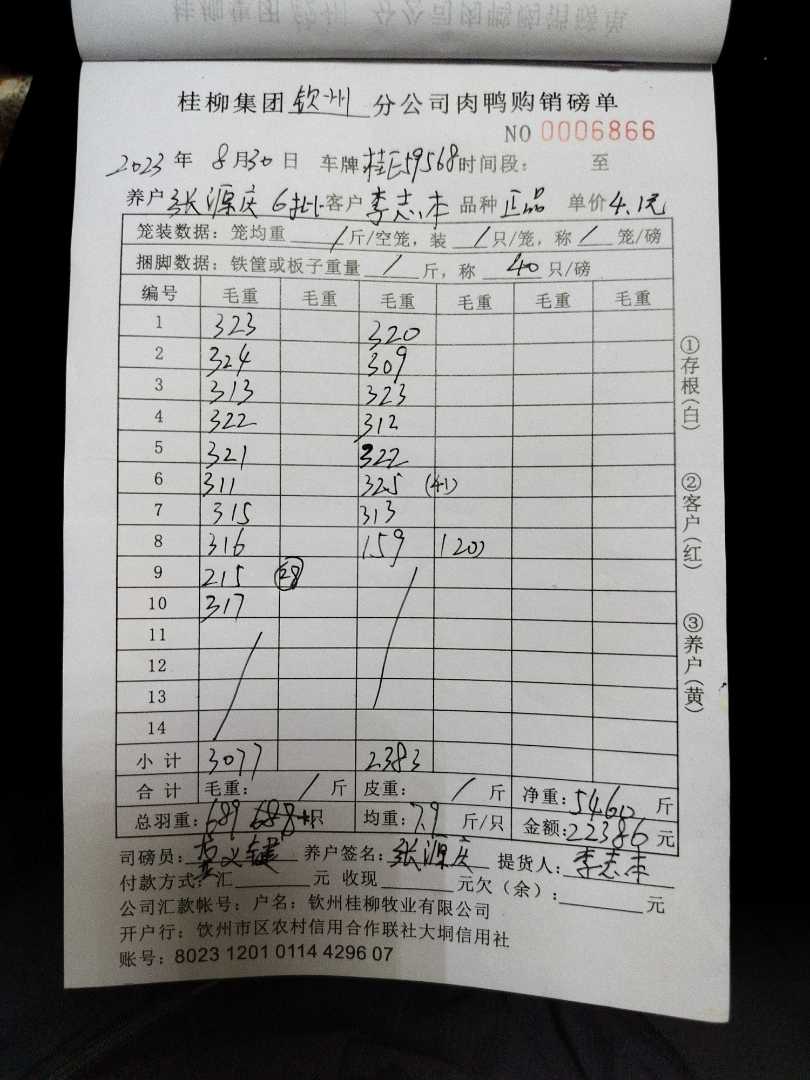 桂柳集团 钦州 分公司肉鸭购销磅单
NO 0006866
2023 年 8月30日 车牌桂E59568时间段： 至
养户 张源庆 6批 客户 李志本 品种 正品 单价4.1元
笼装数据：笼均重 / 斤/空笼，装 / 只/笼，称 / 笼/磅
捆脚数据：铁筐或板子重量 / 斤，称 40 只/磅
编号 毛重 毛重 毛重 毛重 毛重 毛重
1 323 320
2 324 309
3 313 323
4 322 312
5 321 322
6 311 325 (41)
7 315 313
8 316 159 (20)
9 215 28
10 317
11
12
13
14
小计 3077 2383
合计 毛重： / 斤 皮重： / 斤 净重：5460 斤
总羽重：689 688 只 均重：7.9 斤/只 金额：22386 元
司磅员： 义键 养户签名：张源庆 提货人：李志本
付款方式：汇 元 收现 元欠（余）： 元
公司汇款帐号：户名：钦州桂柳牧业有限公司
开户行：钦州市区农村信用合作联社大垌信用社
账号：8023 1201 0114 4296 07
①存根（白）
②客户（红）
③养户（黄）